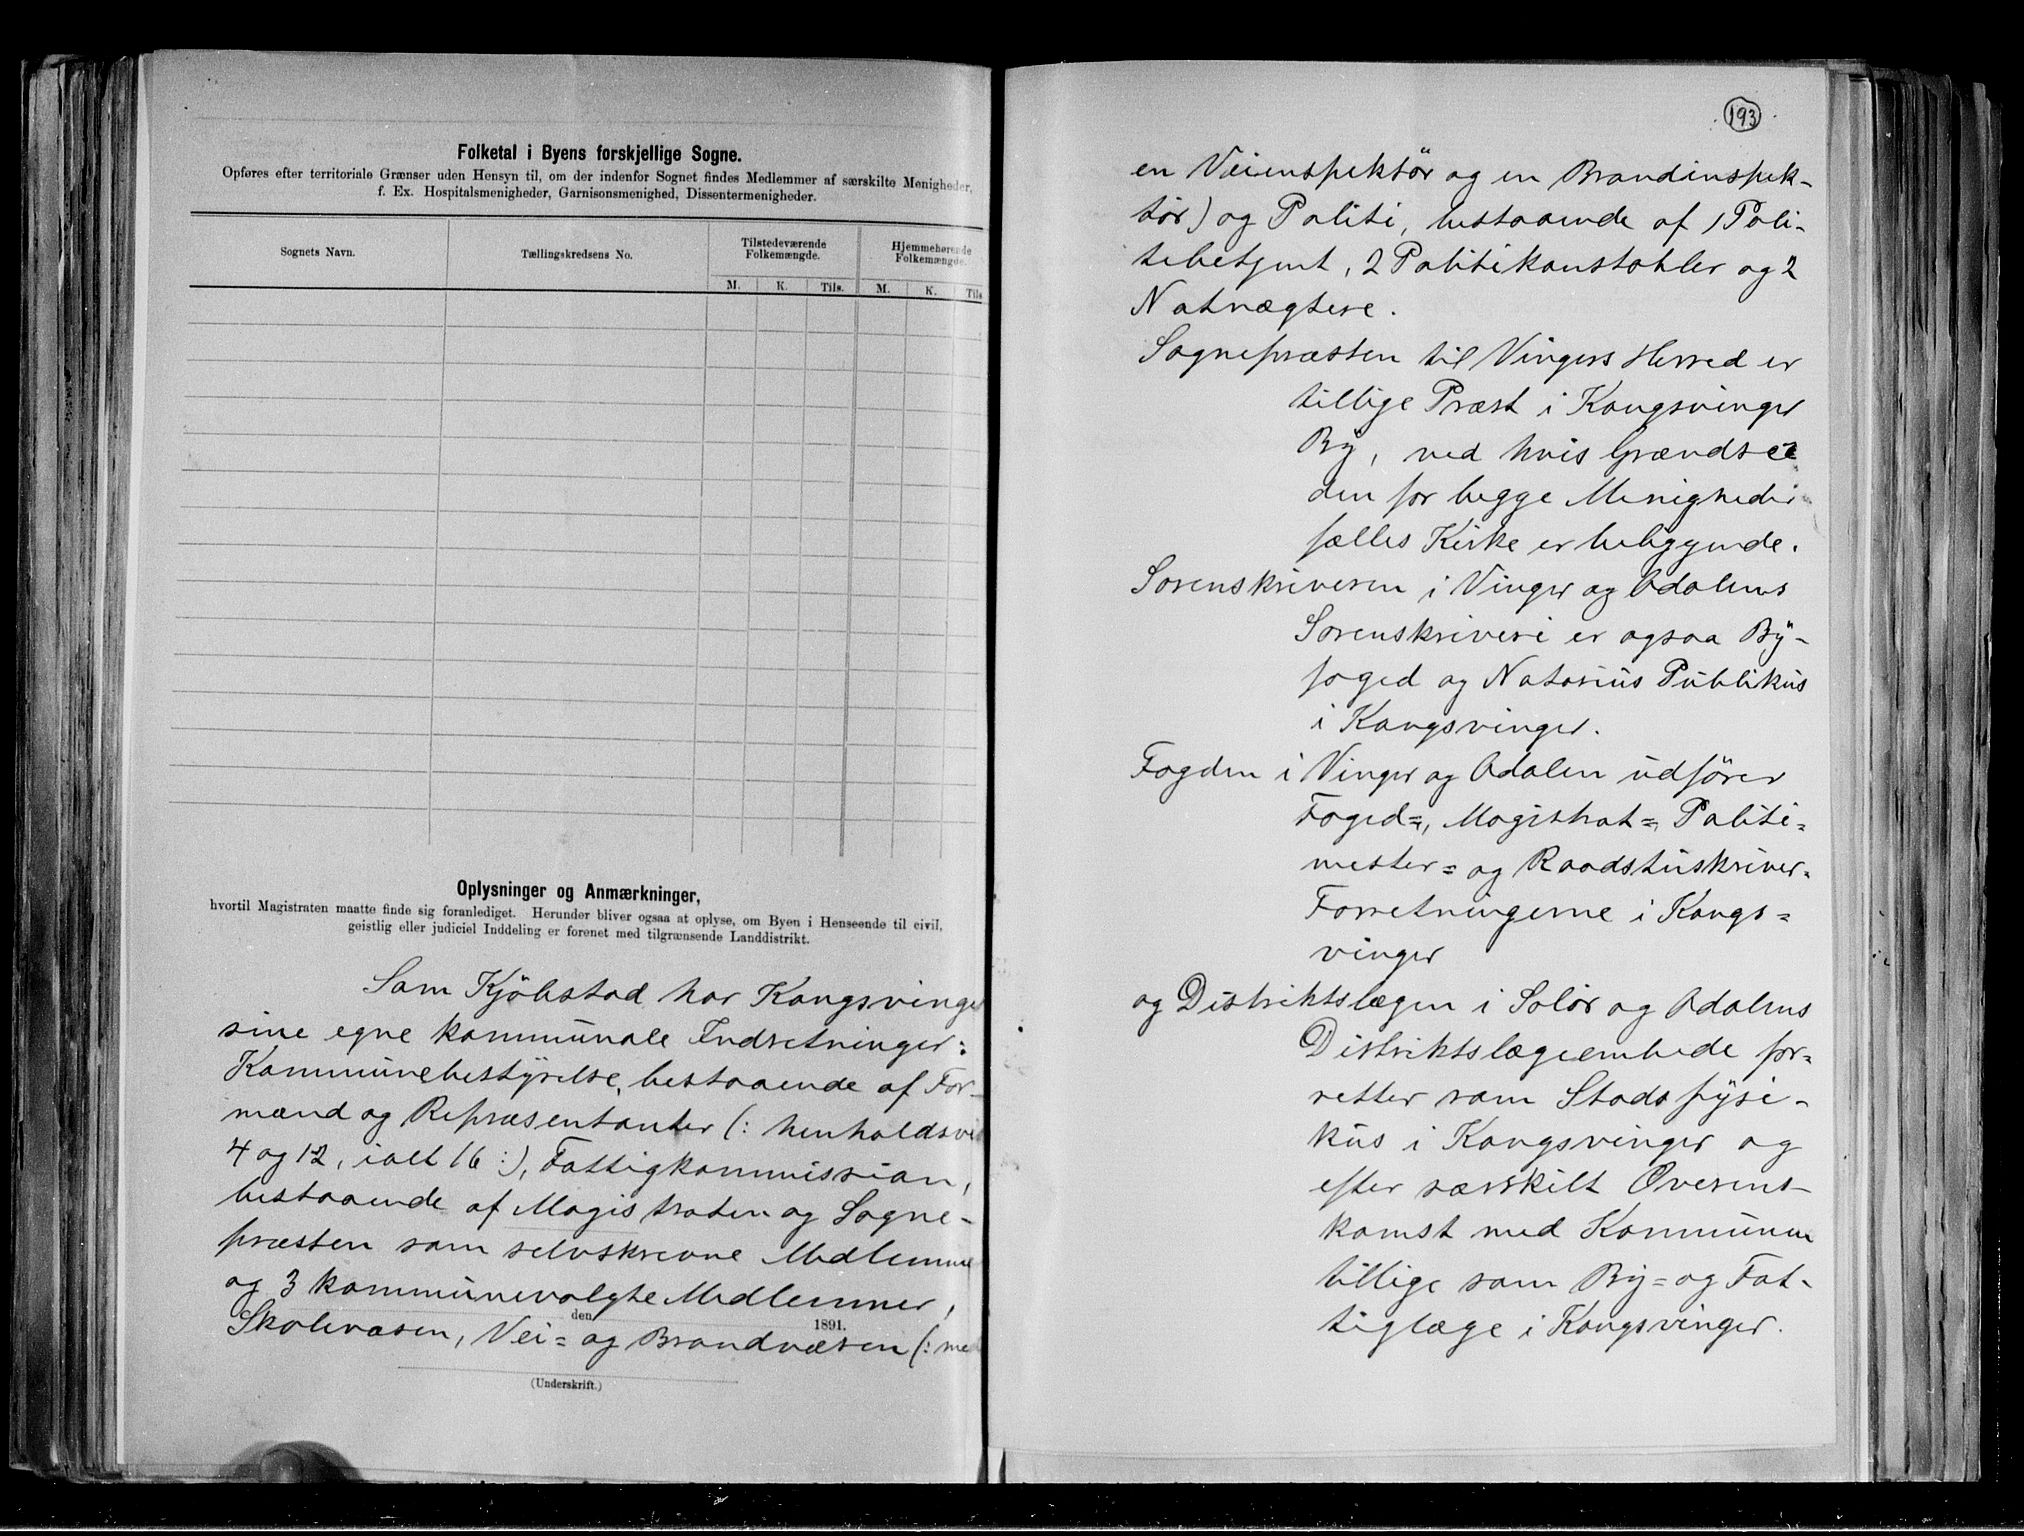 Folketal i Byens forskjellige Sogne.
Opføres efter territoriale Grænser uden Hensyn til, om der indenfor Sognet findes Medlemmer af særskilte Menigheder,
f. Ex. Hospitalsmenigheder, Garnisonsmenighed, Dissentermenigheder.
Sognets Navn.
Tællingskredsens No.
Tilstedeværende
Folkemængde.
Hjemmehørende
Folkemængde.
M. K. Tils. M. K. Tils
Oplysninger og Anmærkninger,
hvortil Magistraten maatte finde sig foranlediget. Herunder bliver ogsaa at oplyse, om Byen i Henseende til civil,
geistlig eller judiciel Inddeling er forenet med tilgrænsende Landdistrikt.
Som Kjöbstad har Kongsvinger
sine egne kommunale Indretninger:
Kommunebestyrelse, bestaaende af For-
mænd og Repræsentanter (: henholdsvis
4 og 12, ialt 16 :), Fattigkommission,
bestaaende af Magistraten og Sogne-
præsten som selvskrevne Medlemmer
og 3 kommunevalgte Medlemmer,
den 1891.
Skolevæsen, Vei= og Brandvæsen (: med
(Underskrift.)
193
en Veiinspektör og en Brandinspek-
tör) og Politi, bestaaende af 1 Poli-
tibetjent, 2 Politikonstabler og 2
Natvægtere.
Sognepræsten til Vingers Herred er
tillige Præst i Kongsvinger
By, ved hvis Grændse
den for begge Menigheder
fælles Kirke er beliggende.
Sorenskriveren i Vinger og Odalens
Sorenskriveri er ogsaa By-
foged og Notarius Publikus
i Kongsvinger.
Fogden i Vinger og Odalen udförer
Foged=, Magistrat=, Politi=
mester= og Raadstuskriver-
Forretningerne i Kongs=
vinger
og Distriktslægen i Solör og Odalens
Distriktslægeembede for-
retter som Stadsfysi-
kus i Kongsvinger og
efter særskilt Overens-
komst med Kommunen
tillige som By= og Fat-
tiglæge i Kongsvinger.